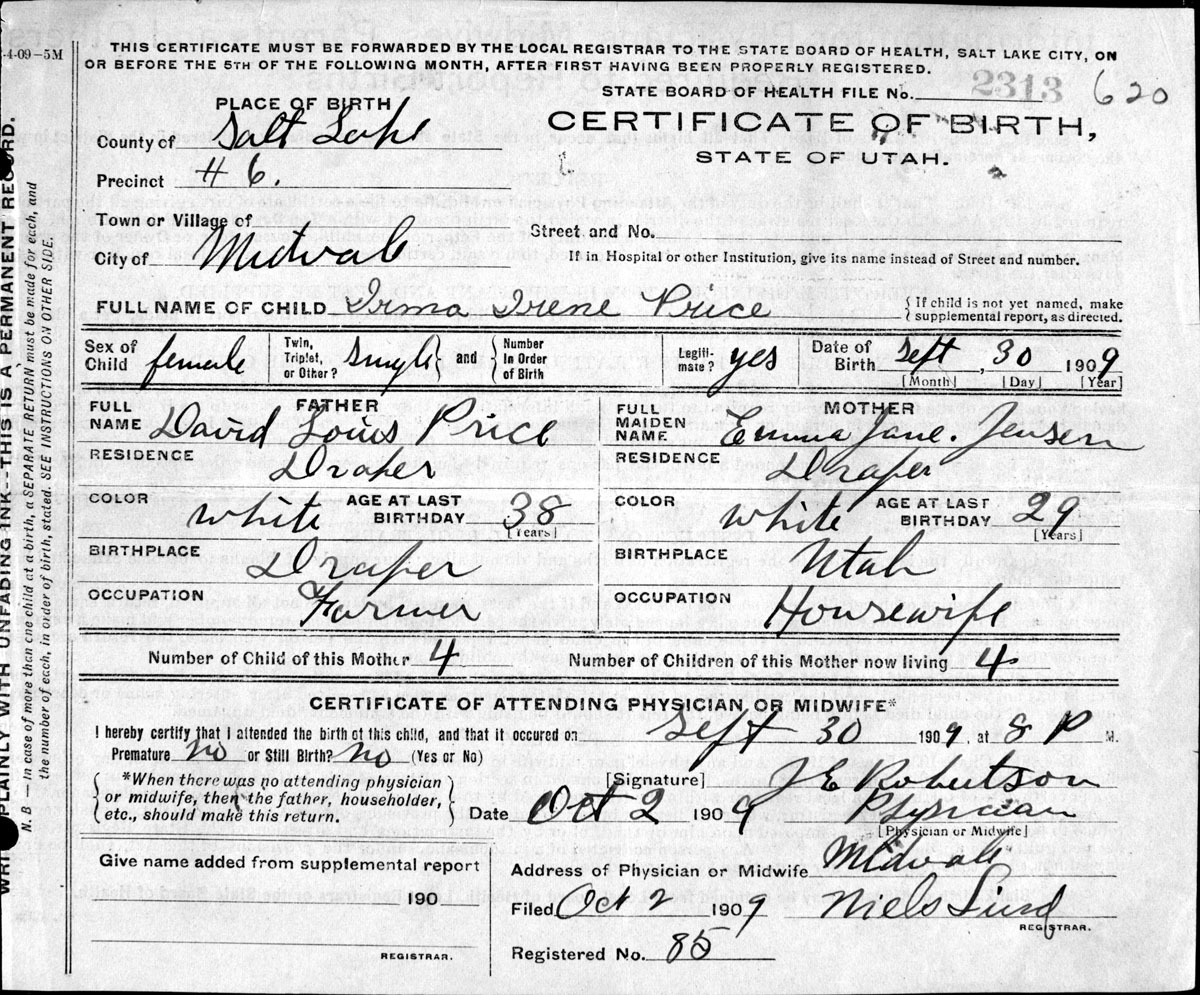 -4-09-5M
THIS CERTIFICATE MUST BE FORWARDED BY THE LOCAL REGISTRAR TO THE STATE BOARD OF HEALTH, SALT LAKE CITY, ON
OR BEFORE THE 5TH OF THE FOLLOWING MONTH, AFTER FIRST HAVING BEEN PROPERLY REGISTERED.
STATE BOARD OF HEALTH FILE No. 2313 620
PLACE OF BIRTH
CERTIFICATE OF BIRTH,
STATE OF UTAH.
County of Salt Lake
Precinct #6.
Town or Village of
Street and No.
City of Midvale
If in Hospital or other Institution, give its name instead of Street and number.
FULL NAME OF CHILD Irma Irene Price
{If child is not yet named, make
supplemental report, as directed.
Sex of Child female
Twin, Triplet, or Other? Single
and Number in Order of Birth
Legiti-mate? yes
Date of Birth Sept, 30 1909
[Month] [Day] [Year]
FATHER
FULL NAME David Louis Price
MOTHER
FULL MAIDEN NAME Emma Jane. Jensen
RESIDENCE Draper
RESIDENCE Draper
COLOR white AGE AT LAST BIRTHDAY 38 [Years]
COLOR white AGE AT LAST BIRTHDAY 29 [Years]
BIRTHPLACE Draper
BIRTHPLACE Utah
OCCUPATION Farmer
OCCUPATION Housewife
Number of Child of this Mother 4
Number of Children of this Mother now living 4
CERTIFICATE OF ATTENDING PHYSICIAN OR MIDWIFE*
I hereby certify that I attended the birth of this child, and that it occured on Sept 30 1909, at 8 P M.
Premature no or Still Birth? no (Yes or No)
*When there was no attending physician
or midwife, then the father, householder,
etc., should make this return.
[Signature] J E Robertson
Date Oct 2 1909 Physician
[Physician or Midwife]
Give name added from supplemental report
190
REGISTRAR.
Address of Physician or Midwife Midvale
Filed Oct 2 1909 Niels Lind
REGISTRAR.
Registered No. 85
PLAINLY WITH UNFADING INK--THIS IS A PERMANENT RECORD.
N. B.—In case of more than one child at a birth, a SEPARATE RETURN must be made for each, and
the number of each, in order of birth, stated. SEE INSTRUCTIONS ON OTHER SIDE.